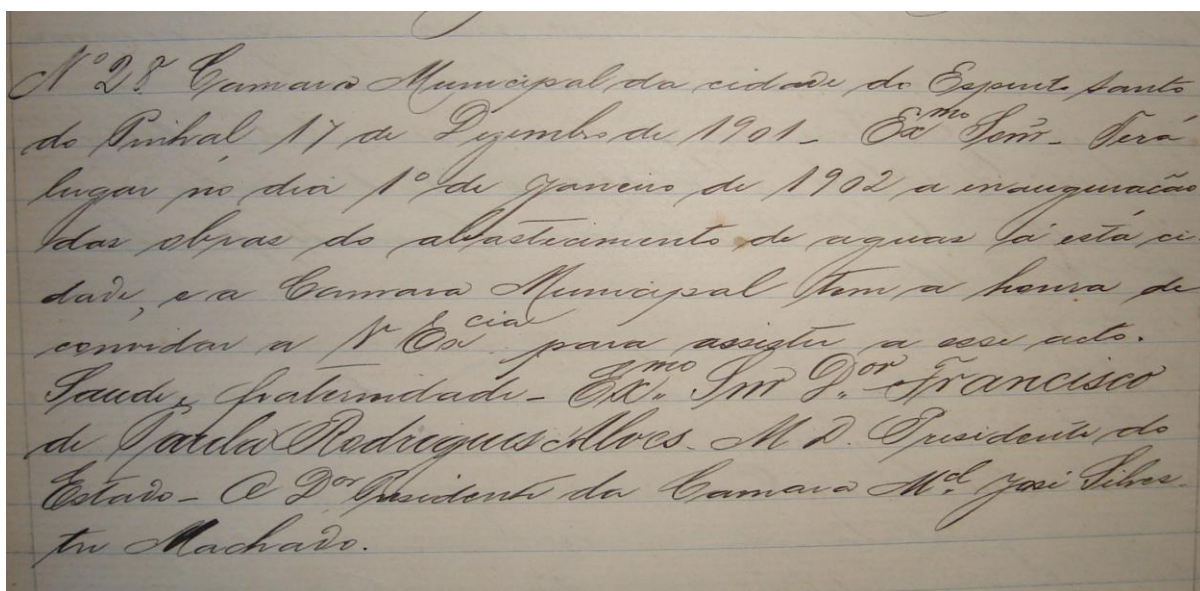 Nº 28 Camara Municipal da cidade do Espirito Santo
do Pinhal, 17 de Dezembro de 1901 - Exmo Senr. Terá
lugar no dia 1º de Janeiro de 1902 a inauguração
das obras do abastecimento de aguas á está ci-
dade, e a Camara Municipal tem a honra de
convidar a V Excia para assistir a esse acto.
Saude e fraternidade - Exmo. Snr Dor. Francisco
de Paula Rodrigues Alves. M D. Presidente do
Estado - O Dor Presidente da Camara Mal José Silves-
tre Machado.